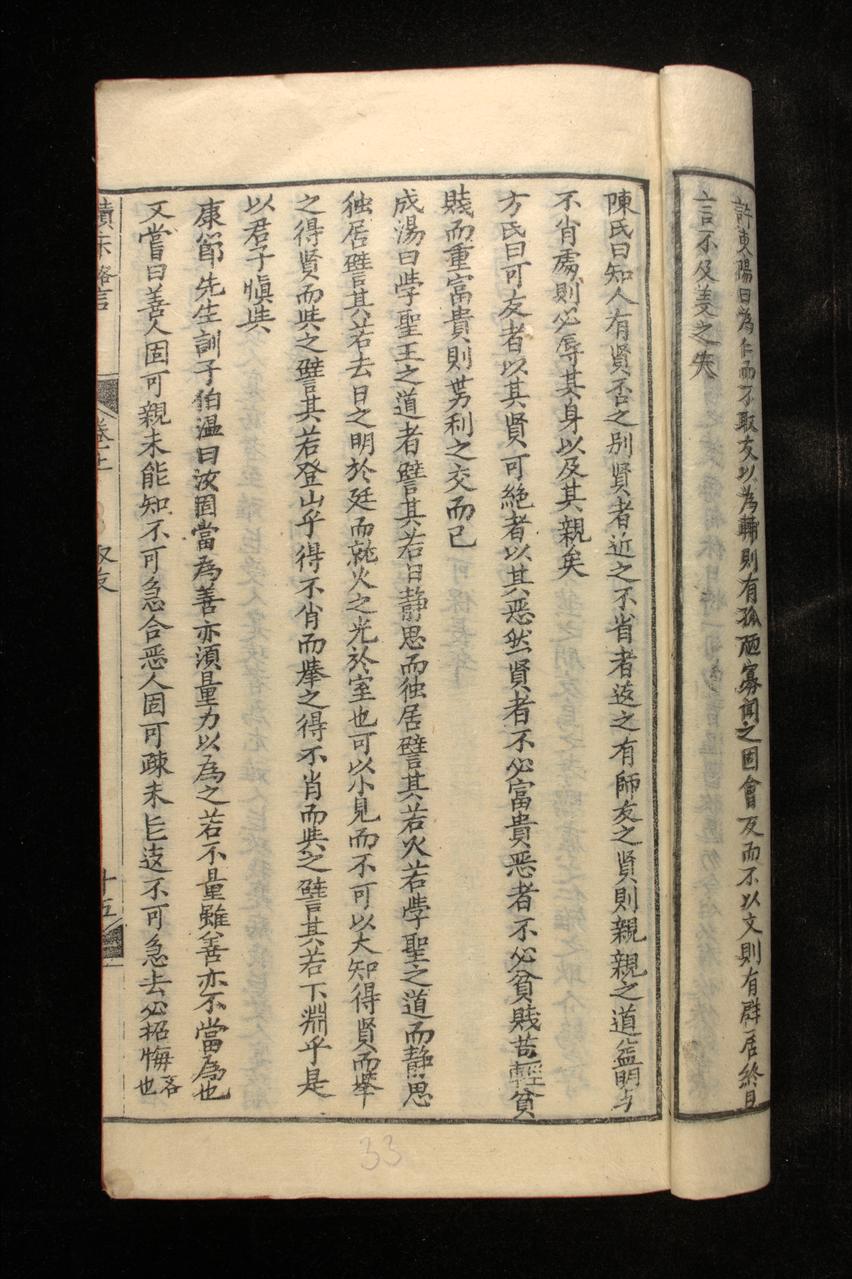 許東陽曰為仁而不取友以為輔則有孤陋寡聞之固會友而不以文則有群居終日
言不及義之失
陳氏曰知人有賢否之别賢者近之不省者逺之有師友之賢則親親之道益明与
不肖處則必辱其身以及其親矣
方氏曰可友者以其賢可絶者以其恶然賢者不必富貴恶者不必貧賎苟輕貧
賎而重富貴則势利之交而已
成湯曰学聖王之道者譬其若日静思而独居譬其若火若学聖之道而静思
独居譬其若去日之明於廷而就火之光於室也可以小見而不可以大知得賢而舉
之得賢而与之譬其若登山乎得不肖而舉之得不肖而与之譬其若下淵乎是
以君子慎与
康節先生訓子伯温曰汝固當為善亦須量力以為之若不量雖善亦不當為也
又嘗曰善人固可親未能知不可急合恶人固可疎未能逺不可急去必招悔吝也
卷之上
取友
十五
33